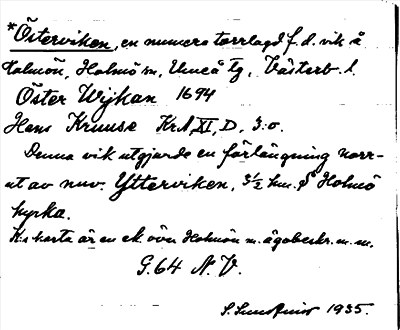 *Österviken, en numera torrlagd f. d. vik å
Holmön, Holmö sn, Umeå tg, Västerb. l.
Öster Wijkan 1694
Hans Kruuse KrA, XI, D, 3:o.
Denna vik utgjorde en förlängning norr-
ut av nuv. Ytterviken, 3½ km. S Holmö
kyrka.
K:s karta är en ek. över Holmön m. ägobeskr. m. m.
G. 64 N. V.
1935.